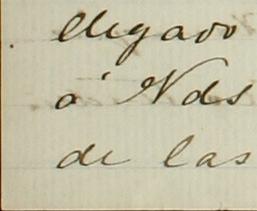 elegado
á Vds
de las